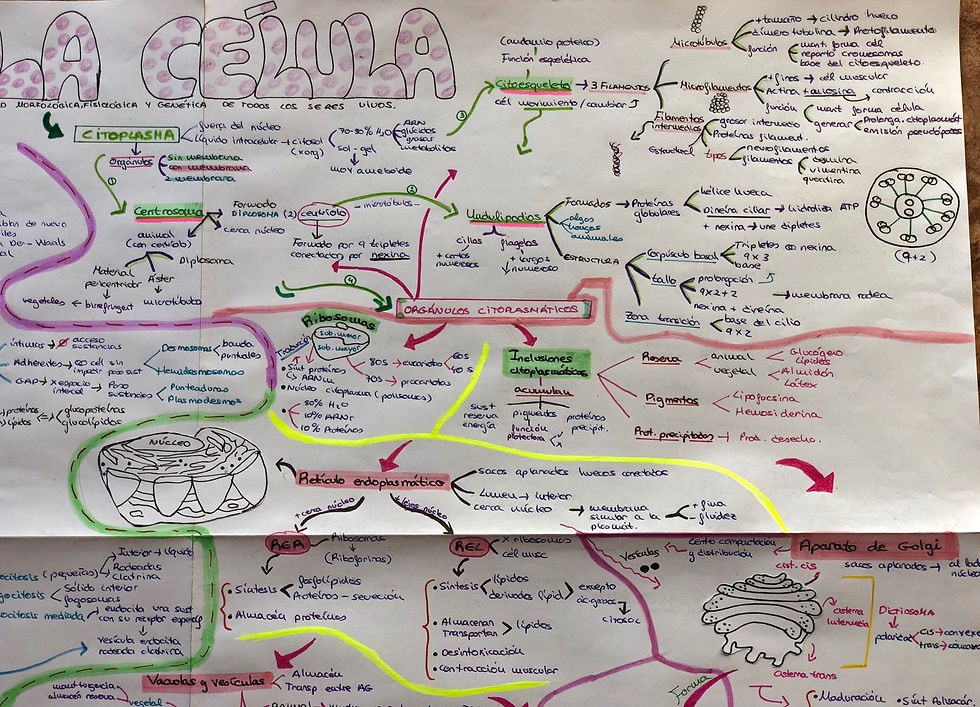 LA CÉLULA
MORFOLÓGICA, FISIOLÓGICA Y GENÉTICA DE TODOS LOS SERES VIVOS.
CITOPLASMA
fuera del núcleo
líquido intracelular → citosol
(xorg)
70-80% H2O
ARN
glúcidos
grasas
metabolitos
sol-gel
mov ameboide
Orgánulos
sin membrana
con membrana
2 membrana
①
Centrosoma
Formado
DIPLOSOMA (2)
centriolo
cerca núcleo
Formado por 9 tripletes
conectados por nexina
animal
(con centriolo)
Diplosoma
Material
pericentriolar
Áster
vegetales ← birefringent
microtúbulos
②
-microtúbulos-
③
(andamio proteico)
Función esquelética
Citoesqueleto → 3 FILAMENTOS
cél movimiento/cambiar
Microtúbulos
+ tamaño → cilindro hueco
dímero tubolina → Protofilamento
función
mant. forma cél
reparto cromosomas
base del citoesqueleto
Microfilamentos
+ finos → cél muscular
Actina + miosina → contracción
función
mant forma célula
generar
Prolonga. citoplasmát
emisión pseudópodos
Filamentos
intermedios
grosor intermedio
Proteínas filament.
Estructural
tipos
neurofilamentos
filamentos
desmina
vimentina
queratina
Undulipodios
cilios
+ cortos
numerosos
flagelos
+ largos
↓ numeroso
Formados → Proteínas
globulares
hélice hueca
Dineína ciliar → hidroliza ATP
+ nexina → une dipletes
algas
hongos
animales
ESTRUCTURA
Corpúsculo basal
Tripletes → nexina
9 x 3
base
tallo
prolongación
9x2+2
→ membrana rodea
nexina + dineína
Zona transición
base del cilio
9 x 2
(9+2)
④
ORGÁNULOS CITOPLASMÁTICOS
Ribosomas
sub. menor
sub. mayor
Traducción
• Sínt proteínas
ARNm
• Núcleo citoplasma (polisomas)
80% H2O
10% ARNr
10% Proteínas
80S → eucariotas
60S
40S
70S → procariotas
Inclusiones
citoplasmáticas
acumulan
sust
reserva
energía
pigmentos
función
protectora
proteínas
precipit.
Reserva
animal
Glucógeno
Lípidos
vegetal
Almidón
Látex
Pigmentos
Lipofucsina
Hemosiderina
Prot. precipitados → Prot. desecho.
acceso
sustancias
Adherentes
impedir paso sust
Desmosomas
banda
puntuales
Hemidesmosomas
GAP → x espacio
intercel
→ Paso
sustancias
Punteaduras
Plasmodesmos
proteínas
lípidos
glucoproteínas
glucolípidos
NÚCLEO
Retículo endoplasmático
sacos aplanados huecos conectados
Lumen → interior
cerca núcleo → membrana
similar a la
plasmát.
+ fina
- fluidez
+ cerca núcleo
+ lejos núcleo
RER
Ribosomas
(Riboforinas)
• Síntesis
fosfolípidos
Proteínas → secreción
• Almacén proteínas
REL
x ribosomas
cél musc
• Síntesis
lípidos
derivados lípid
excepto
ác. grasos
citosol
• Almacenan
Transportan
lípidos
• Desintoxicación
• contracción muscular
(pequeñas)
Interior → líquido
Rodeadas
clatrina
Sólido interior
fagosomas
mediada
endocita una sust
con su receptor específ
vesícula endocita
rodeada clatrina
Vacuolas y vesículas
Almacén
Transp entre AG
mant turgencia
almacén reserva
vegetal
animal
Vesículas
centro compactación
y distribución
Aparato de Golgi
cist. cis
sacos aplanados → al lado
cisterna
intermedia
DICTIOSOMA
polaridad
cis →
trans →
cisterna trans
Forma
• Maduración